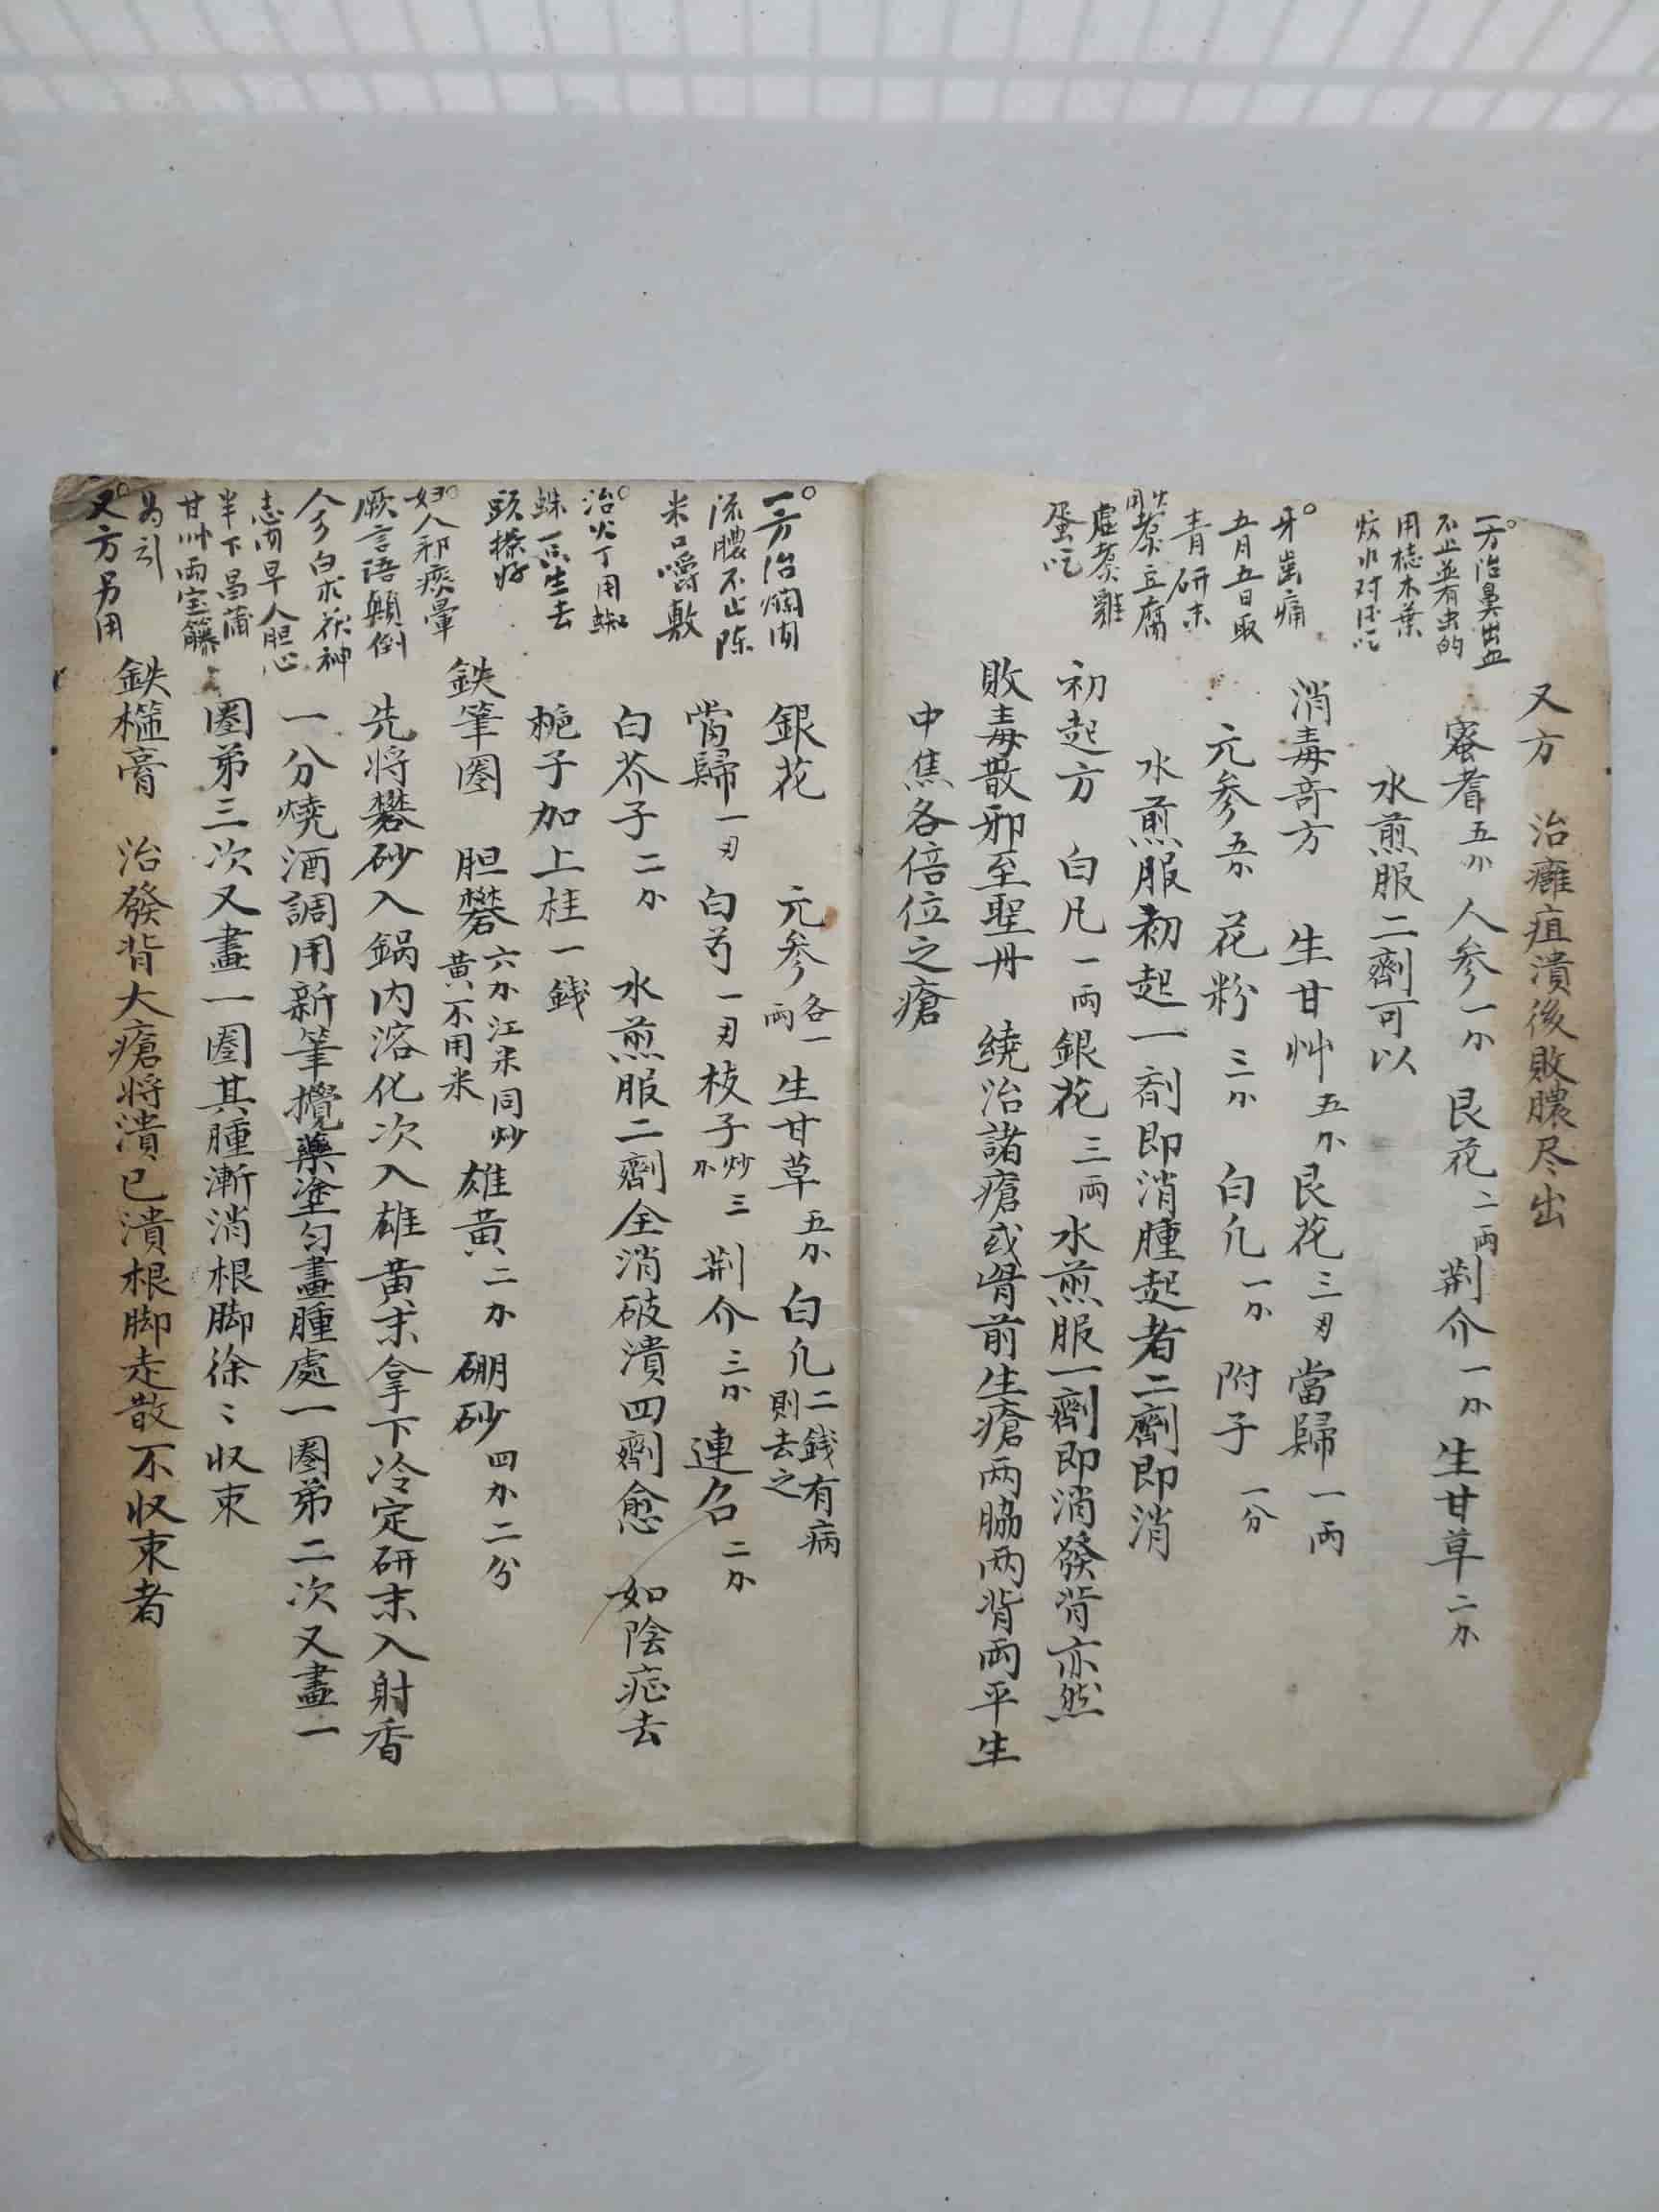 一方治鼻出血
不止並有虫的
用
牙齒痛
五月五日取
青研末
煮豆腐
虚煮雞
蛋吃
又方　治癰疽潰後敗膿尽出
蜜耆五小人参一小　艮花二両荆介一小生甘草二小
水煎服二劑可以
消毒竒方　生甘艸五小艮花三刄當歸一両
元参五小　花粉三小　白凡一小　附子一分
水煎服初起一剤即消腫起者二劑即消
初起方　白凡一両銀花三両水煎服一劑即消發背亦然
敗毒散邪至聖丹　繞治諸瘡或背前生瘡两脇两背両平生
中焦各倍位之瘡
一方治爛肉
流膿不止陈
米口嚼敷
治火丁用蜘
蛛一只生去
頭搽好
婦人邪痰暈
厥言語顛倒
人参白术茯神
志肉早人胆心
半下昌蒲
甘艸両宝籐
為引
又方另用
銀花　元参各一両生甘草五小白凡二銭有病則去之
當歸一刄白芍一刄枝子炒三小　荆介三小連召二小
白芥子二小　水煎服二劑全消破潰四劑愈　如陰症去
梔子加上桂一銭
鉄筆圏　胆礬六小江米同炒黄不用米　雄黄二小　硼砂四小二分
先将礬砂入鍋内溶化次入雄黄末拿下冷定研末入射香
一分燒酒調用新筆攪藥塗勻畫腫處一圏弟二次又畫一
圏弟三次又畫一圏其腫漸消根脚徐〻収束
鉄櫛膏　治發背大瘡将潰已潰根脚走散不収束者